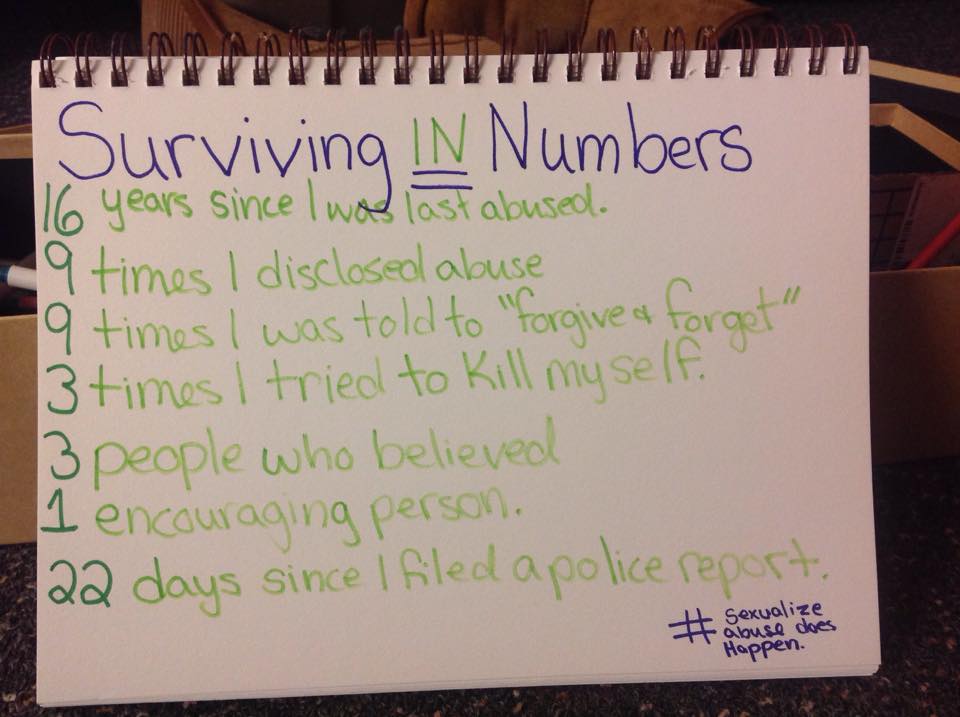 Surviving IN Numbers
16 years since I was last abused.
9 times I disclosed abuse
9 times I was told to "forgive & forget"
3 times I tried to kill myself.
3 people who believed
1 encouraging person.
22 days since I filed a police report.
# Sexualize
abuse does
Happen.